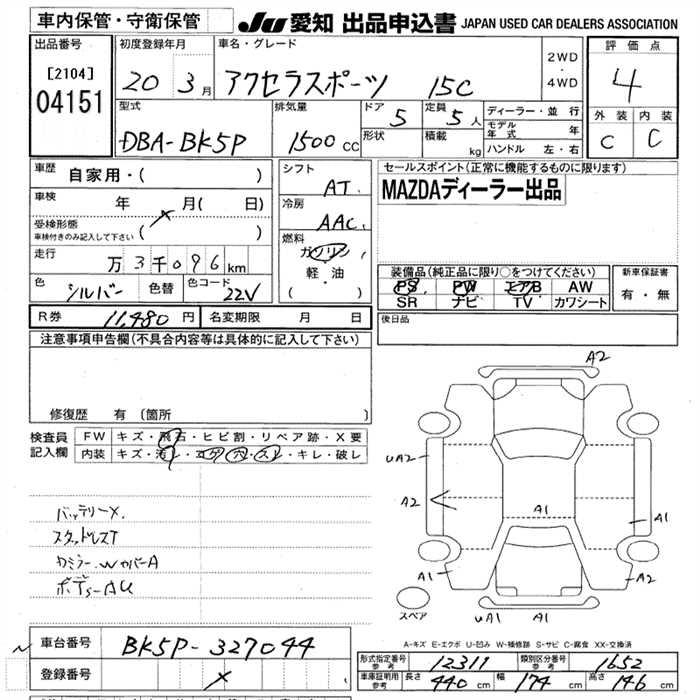 車内保管・守衛保管
JU 愛知 出品申込書 JAPAN USED CAR DEALERS ASSOCIATION
出品番号
[2104]
04151
初度登録年月
20 3月
車名・グレード
アクセラスポーツ 15C
2WD
・
4WD
評価点
4
外装 内装
C C
型式
DBA-BK5P
排気量
1500cc
ドア 5
定員 5人
形状
積載 kg
ディーラー・並行
モデル年式 年
ハンドル 左・右
車歴 自家用・( )
車検 年 月( 日)
受検形態
車検付きのみ記入して下さい ( )
走行 万3千096km
色 シルバー 色替 色コード 22V
シフト
AT
冷房
AAC
燃料
ガソリン
軽・油
( )
セールスポイント(正常に機能するものに限ります)
MAZDAディーラー出品
装備品(純正品に限り○をつけてください)
PS PW エアB AW
SR ナビ TV カワシート
新車保証書
有・無
R券 11,480円 名変期限 月 日
後日品
注意事項申告欄(不具合内容等は具体的に記入して下さい)
修復歴 有(箇所 )
検査員
記入欄
FW キズ・飛石・ヒビ割・リペア跡・X要
内装 キズ・汚レ・コゲ・穴・スレ・キレ・破レ
バッテリーX.
スタッドレスT
カミラー.WカバーA
ボデS-AU
A2
UA2
A2
A1
A1
A1
A2
UA1
A1
スペア
A-キズ E-エクボ U-凹み W-補修跡 S-サビ C-腐食 XX-交換済
車台番号 BK5P-327044
登録番号
形式指定番号
参考 12311
類別区分番号
参考 1652
車庫証明用
参考 長さ 440cm 幅 174cm 高さ 146cm